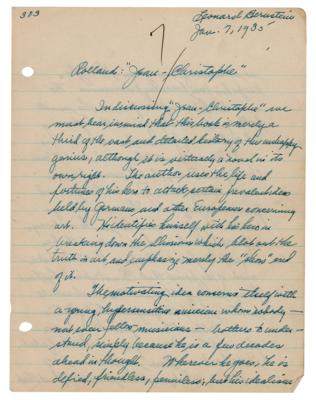 303
Leonard Bernstein
Jan. 7, 1935
Rolland: "Jean-Christophe"
In discussing "Jean-Christophe" we
must bear in mind that this book is merely a
third of the vast and detailed history of the unhappy
genius, although it is entirely a novel in its
own right. The author uses the life and
fortunes of his hero to attack certain prevalent ideas
held by Germans and other Europeans concerning
art. He identifies himself with his hero in
breaking down the illusions which blot out the
truth in art, and emphasize merely the "show" end
of it.
The motivating idea concerns itself with
a young hypersensitive musician whom nobody —
not even fellow musicians — bothers to under-
stand, simply because he is a few decades
ahead in thought. Wherever he goes, he is
defied, friendless, penniless; but his idealism